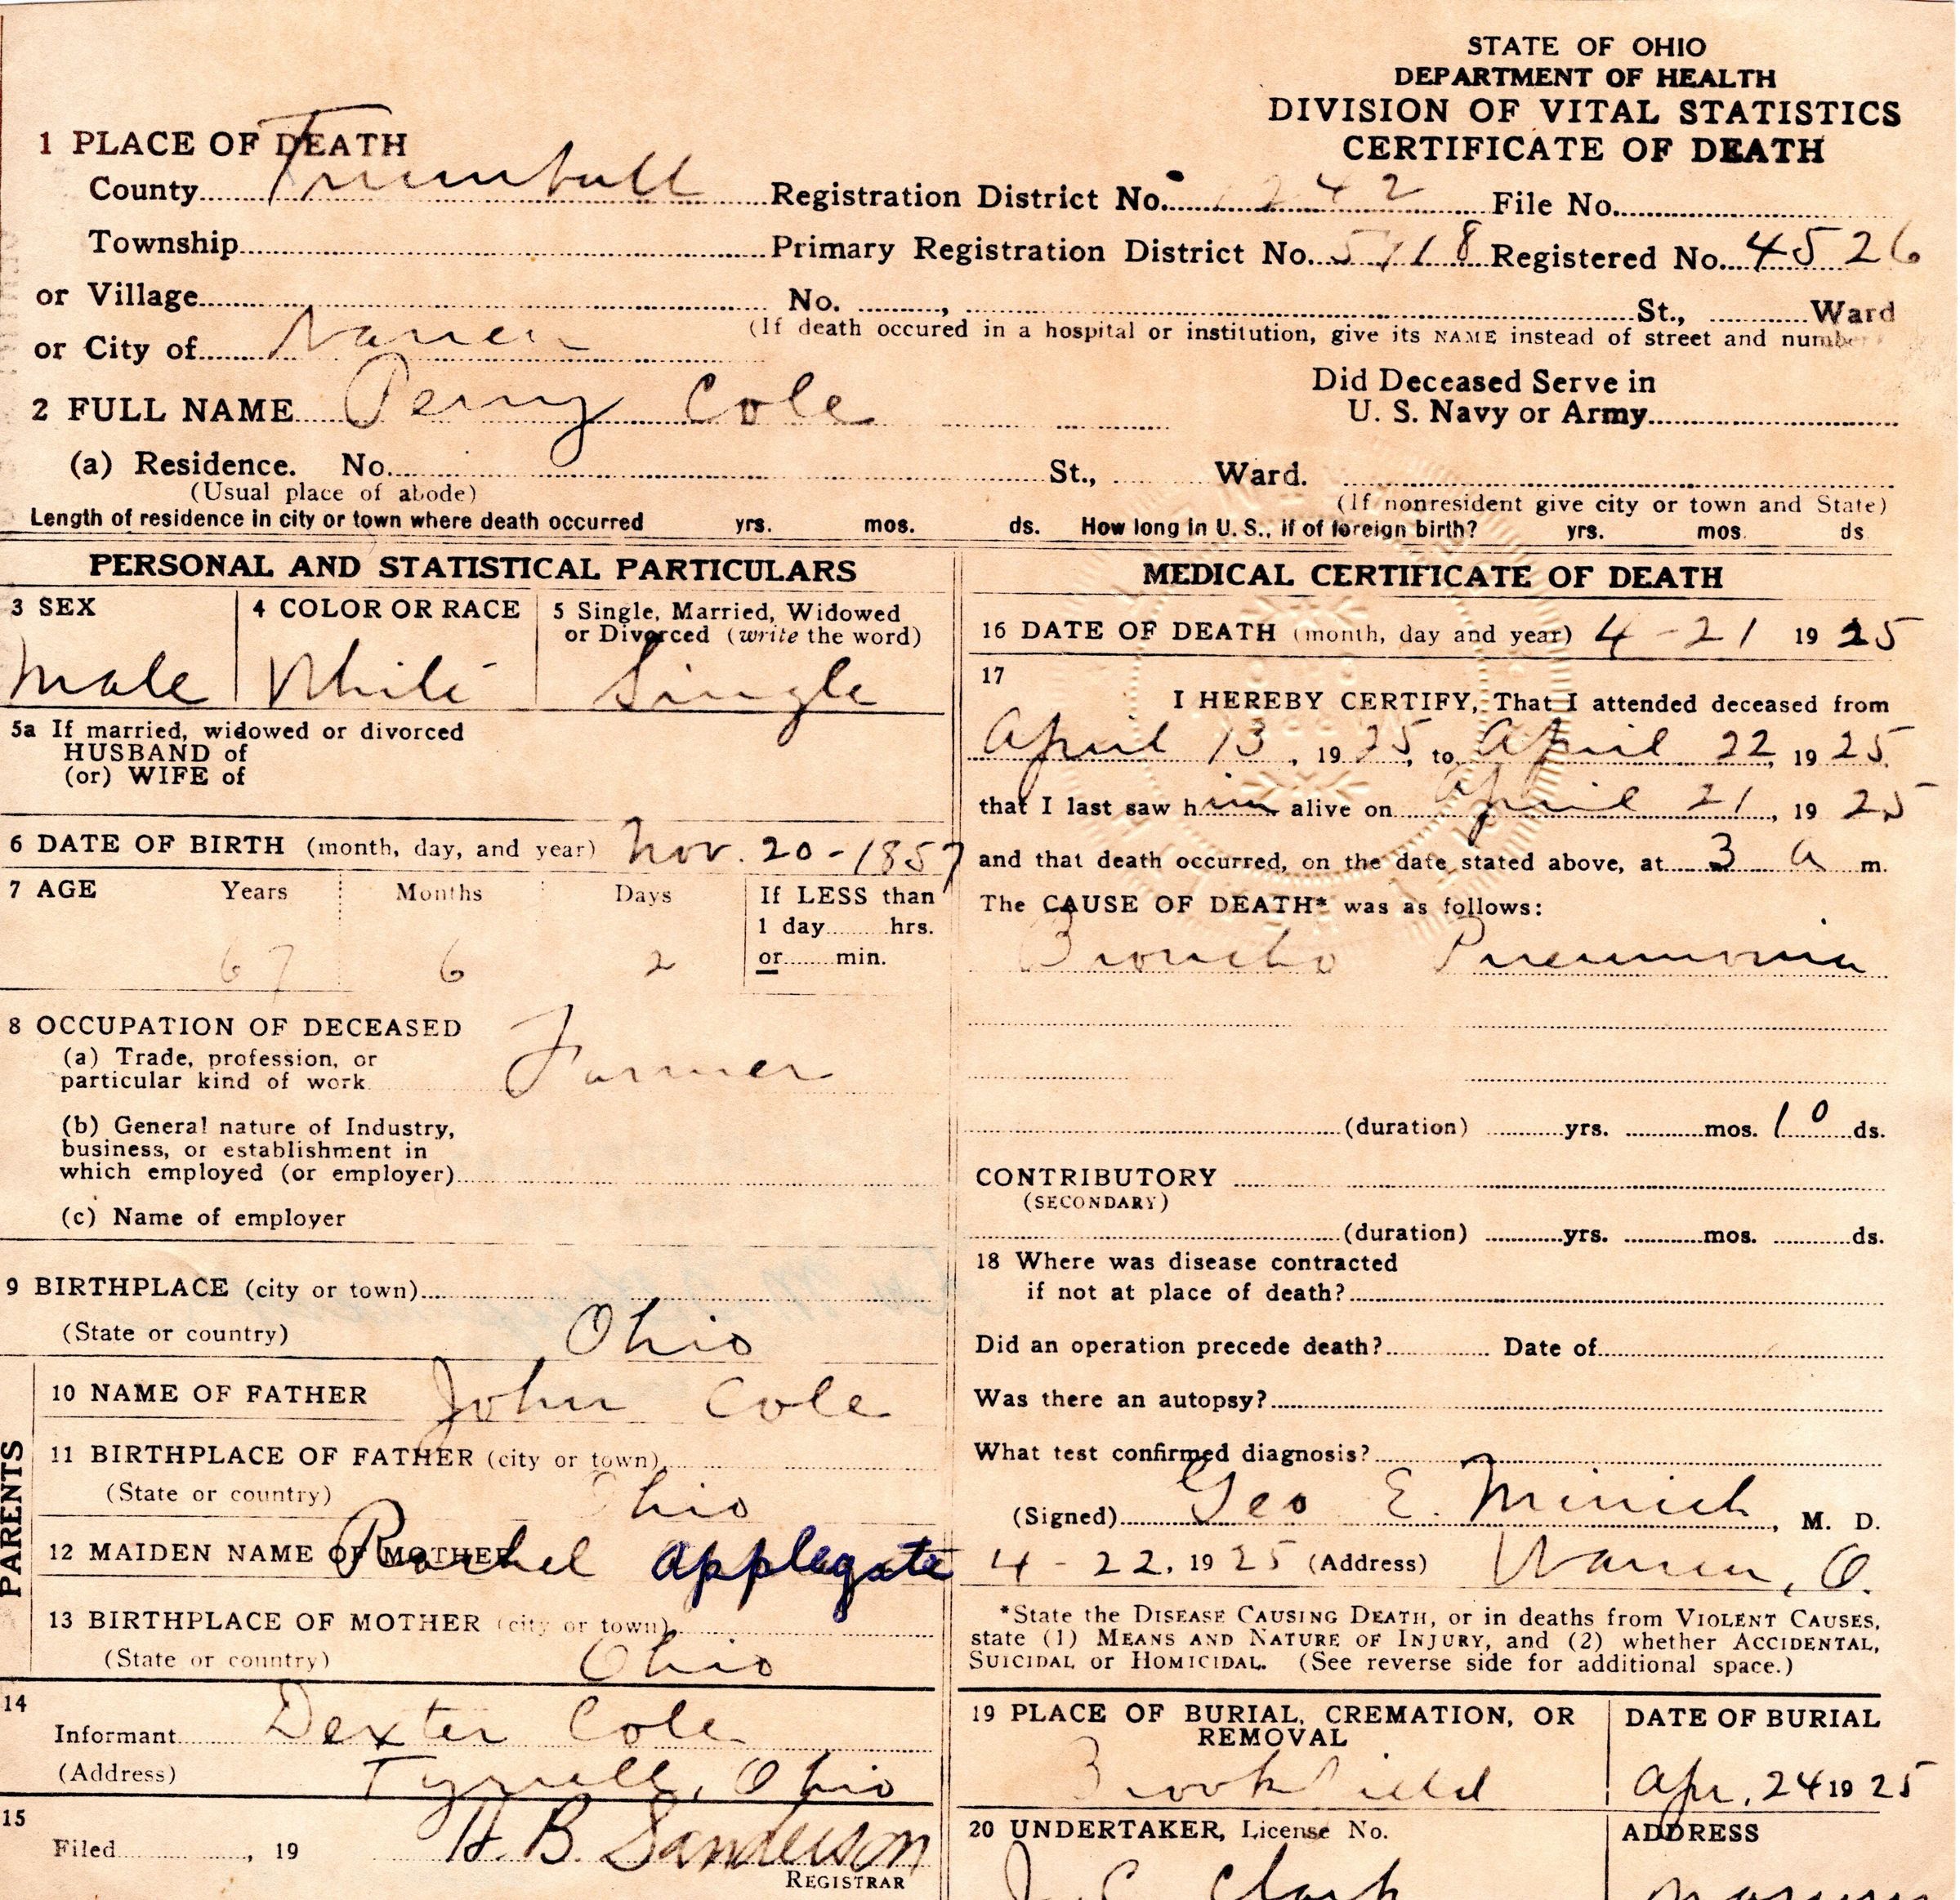 STATE OF OHIO
DEPARTMENT OF HEALTH
DIVISION OF VITAL STATISTICS
CERTIFICATE OF DEATH
1 PLACE OF DEATH
County Trumbull Registration District No. 1242 File No.
Township Primary Registration District No. 5718 Registered No. 4526
or Village No. , St., Ward
or City of Warren (If death occured in a hospital or institution, give its NAME instead of street and number
2 FULL NAME Perry Cole
Did Deceased Serve in
U. S. Navy or Army
(a) Residence. No. St., Ward.
(Usual place of abode) (If nonresident give city or town and State)
Length of residence in city or town where death occurred yrs. mos. ds. How long in U. S., if of foreign birth? yrs. mos. ds
PERSONAL AND STATISTICAL PARTICULARS
3 SEX 4 COLOR OR RACE 5 Single, Married, Widowed
or Divorced (write the word)
Male White Single
5a If married, widowed or divorced
HUSBAND of
(or) WIFE of
6 DATE OF BIRTH (month, day, and year) Nov. 20-1857
7 AGE Years Months Days If LESS than
1 day hrs.
67 6 2 or min.
8 OCCUPATION OF DECEASED
(a) Trade, profession, or
particular kind of work Farmer
(b) General nature of Industry,
business, or establishment in
which employed (or employer)
(c) Name of employer
9 BIRTHPLACE (city or town)
(State or country) Ohio
PARENTS
10 NAME OF FATHER John Cole
11 BIRTHPLACE OF FATHER (city or town)
(State or country) Ohio
12 MAIDEN NAME OF MOTHER Rachel Applegate
13 BIRTHPLACE OF MOTHER (city or town)
(State or country) Ohio
14
Informant Dexter Cole
(Address) Tyrrell, Ohio
15
Filed , 19 H. B. Sanderson
REGISTRAR
MEDICAL CERTIFICATE OF DEATH
16 DATE OF DEATH (month, day and year) 4-21 1925
17
I HEREBY CERTIFY, That I attended deceased from
April 13, 1925, to April 22, 1925,
that I last saw him alive on April 21, 1925
and that death occurred, on the date stated above, at 3 a m.
The CAUSE OF DEATH* was as follows:
Broncho Pneumonia
(duration) yrs. mos. 10 ds.
CONTRIBUTORY
(SECONDARY)
(duration) yrs. mos. ds.
18 Where was disease contracted
if not at place of death?
Did an operation precede death? Date of
Was there an autopsy?
What test confirmed diagnosis?
(Signed) Geo E. Minich, M. D.
4-22, 1925 (Address) Warren, O.
*State the DISEASE CAUSING DEATH, or in deaths from VIOLENT CAUSES,
state (1) MEANS AND NATURE OF INJURY, and (2) whether ACCIDENTAL,
SUICIDAL or HOMICIDAL. (See reverse side for additional space.)
19 PLACE OF BURIAL, CREMATION, OR
REMOVAL
Brookfield
DATE OF BURIAL
Apr. 24 1925
20 UNDERTAKER, License No. ADDRESS
J. C. Clark